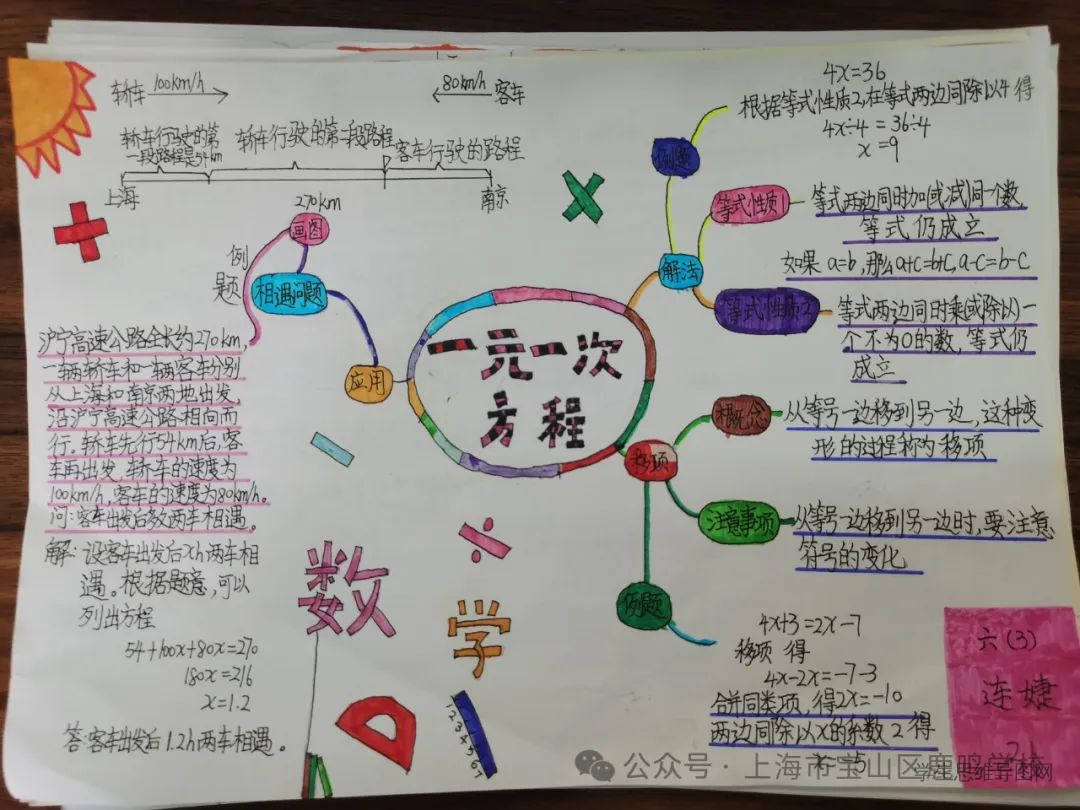 轿车 100km/h
80km/h 客车
轿车行驶的第
一段路程是54km
轿车行驶的第二段路程
客车行驶的路程
上海
南京
270km
画图
例
题
相遇问题
应用
沪宁高速公路全长约270km,
一辆轿车和一辆客车分别
从上海和南京两地出发,
沿沪宁高速公路相向而
行。轿车先行54km后,客
车再出发,轿车的速度为
100km/h,客车的速度为80km/h。
问:客车出发后多久两车相遇。
解:设客车出发后xh两车相
遇。根据题意,可以
列出方程
54+100x+80x=270
180x=216
x=1.2
答:客车出发后1.2h两车相遇。
一元一次
方程
数
学
1 2 3 4 5 6 7
4x=36
根据等式性质2,在等式两边同除以4 得
4x÷4=36÷4
x=9
例题
等式性质1
等式两边同时加(或减)同一个数,
等式仍成立
如果a=b,那么a+c=b+c,a-c=b-c
解法
等式性质2
等式两边同时乘(或除以)一
个不为0的数,等式仍
成立
概念
从等号一边移到另一边,这种变
形的过程称为移项
移项
注意事项
从等号一边移到另一边时,要注意
符号的变化
例题
4x+3=2x-7
移项 得
4x-2x=-7-3
合并同类项,得2x=-10
两边同除以x的系数2 得
x=-5
六(3)
连婕
公众号·上海市宝山区鹿鸣学校
学生思维导图网